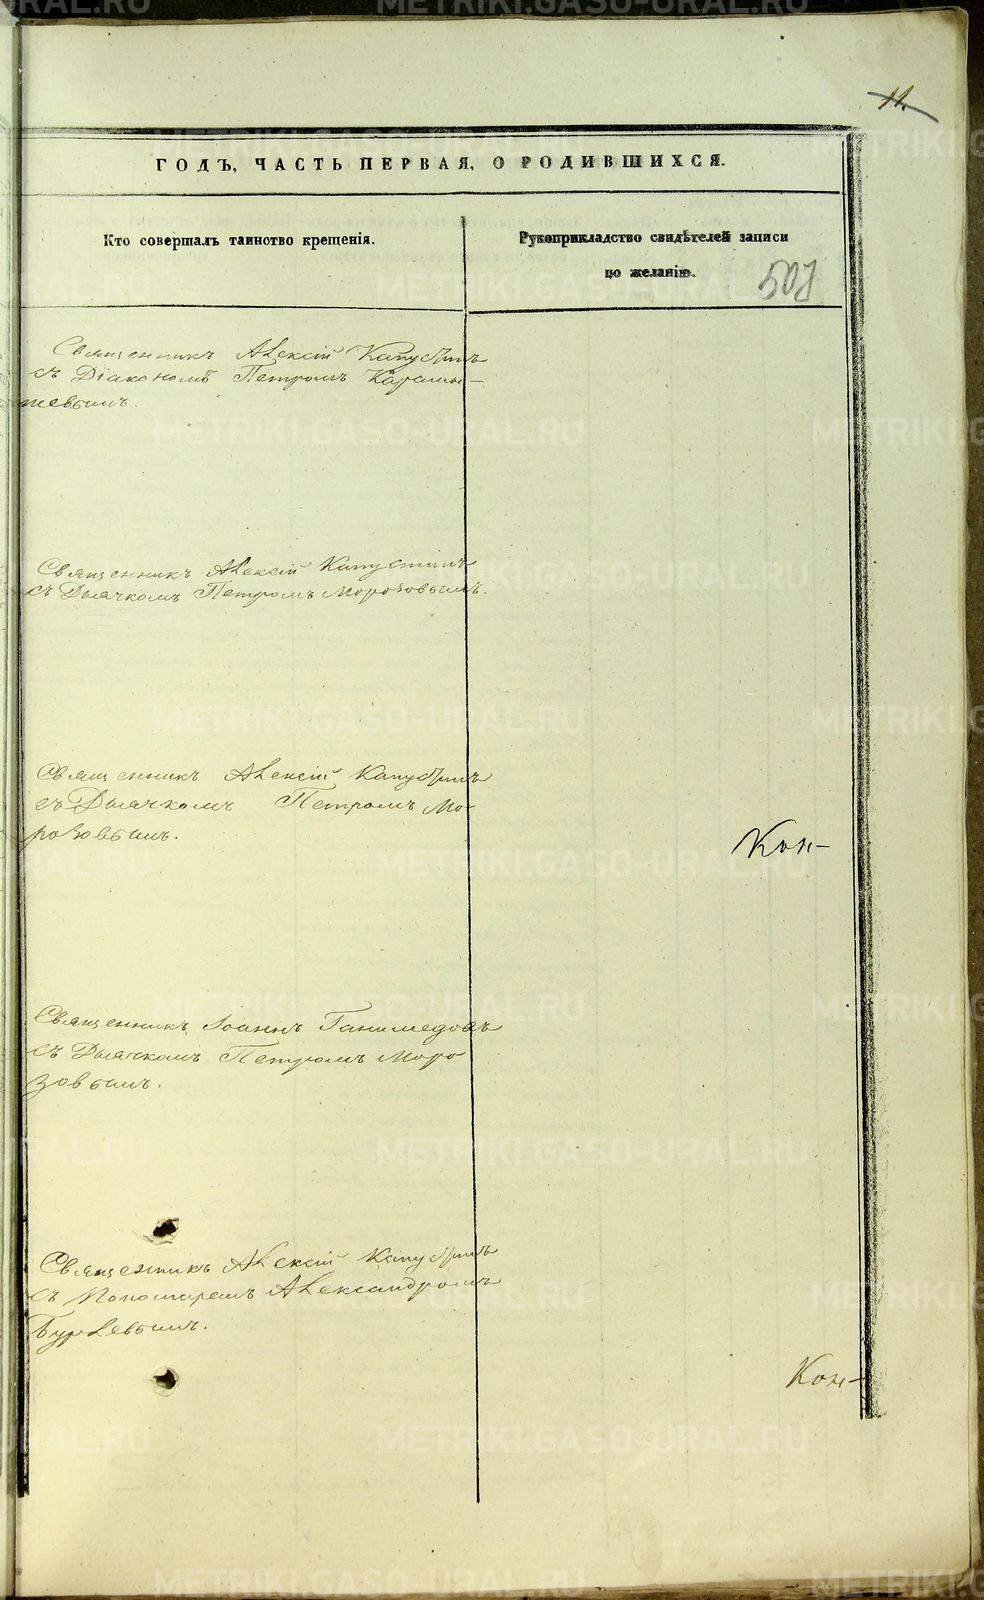 11.
ГОДЪ, ЧАСТЬ ПЕРВАЯ, О РОДИВШИХСЯ.
Кто совершалъ таинство крещенія.
Рукоприкладство свидѣтелей записи
по желанію.
507
Священникъ Алексій Капустинъ
съ Діакономъ Петромъ Карамы-
шевымъ.
Священникъ Алексій Капустинъ
съ Дьячкомъ Петромъ Морозовымъ.
Священникъ Алексій Капустинъ
съ Дьячкомъ Петромъ Мо-
розовымъ.
Кон-
Священникъ Іоаннъ Ганимедовъ
съ Дьячкомъ Петромъ Моро
зовымъ.
Священникъ Алексій Капустинъ
съ Пономаремъ Александромъ
Бурлевымъ.
Кон-
METRIKI.GASO-URAL.RU